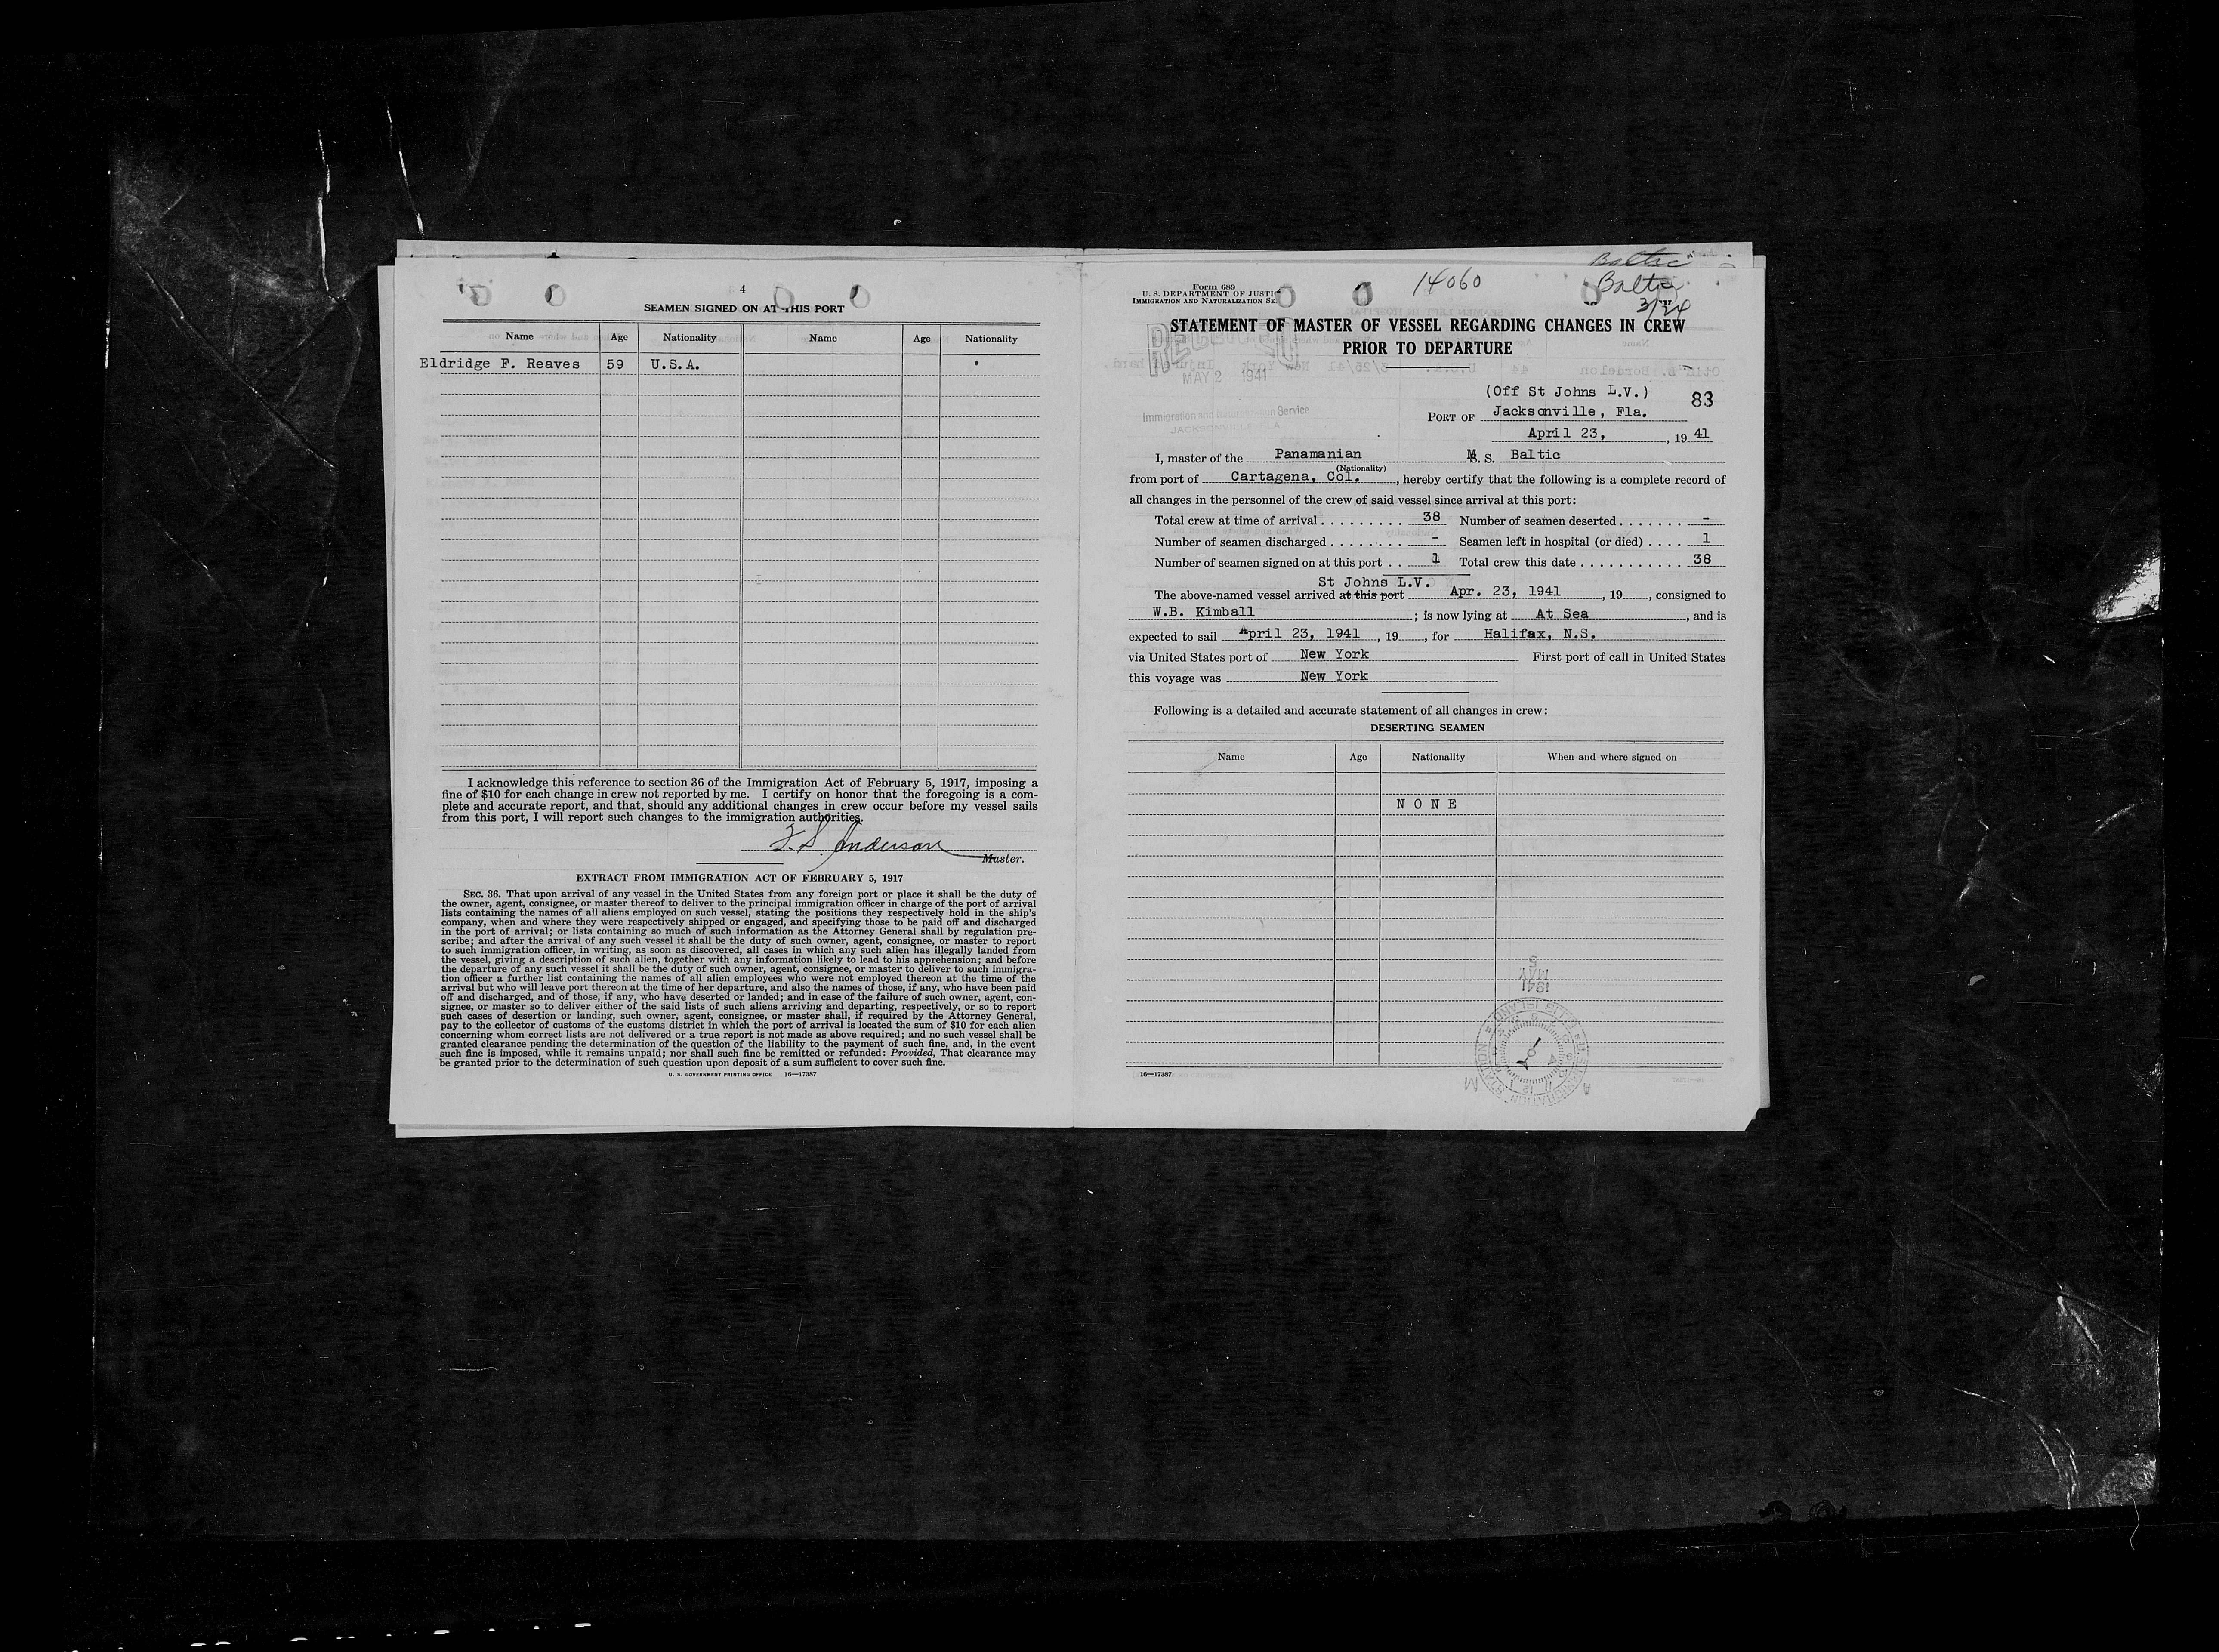 4
SEAMEN SIGNED ON AT THIS PORT
Name Age Nationality Name Age Nationality
Eldridge F. Reaves 59 U.S.A.
I acknowledge this reference to section 36 of the Immigration Act of February 5, 1917, imposing a
fine of $10 for each change in crew not reported by me. I certify on honor that the foregoing is a com-
plete and accurate report, and that, should any additional changes in crew occur before my vessel sails
from this port, I will report such changes to the immigration authorities.
F. S. Anderson
Master.
EXTRACT FROM IMMIGRATION ACT OF FEBRUARY 5, 1917
SEC. 36. That upon arrival of any vessel in the United States from any foreign port or place it shall be the duty of
the owner, agent, consignee, or master thereof to deliver to the principal immigration officer in charge of the port of arrival
lists containing the names of all aliens employed on such vessel, stating the positions they respectively hold in the ship's
company, when and where they were respectively shipped or engaged, and specifying those to be paid off and discharged
in the port of arrival; or lists containing so much of such information as the Attorney General shall by regulation pre-
scribe; and after the arrival of any such vessel it shall be the duty of such owner, agent, consignee, or master to report
to such immigration officer, in writing, as soon as discovered, all cases in which any such alien has illegally landed from
the vessel, giving a description of such alien, together with any information likely to lead to his apprehension; and before
the departure of any such vessel it shall be the duty of such owner, agent, consignee, or master to deliver to such immigra-
tion officer a further list containing the names of all alien employees who were not employed thereon at the time of the
arrival but who will leave port thereon at the time of her departure, and also the names of those, if any, who have been paid
off and discharged, and of those, if any, who have deserted or landed; and in case of the failure of such owner, agent, con-
signee, or master so to deliver either of the said lists of such aliens arriving and departing, respectively, or so to report
such cases of desertion or landing, such owner, agent, consignee, or master shall, if required by the Attorney General,
pay to the collector of customs of the customs district in which the port of arrival is located the sum of $10 for each alien
concerning whom correct lists are not delivered or a true report is not made as above required; and no such vessel shall be
granted clearance pending the determination of the question of the liability to the payment of such fine, and, in the event
such fine is imposed, while it remains unpaid; nor shall such fine be remitted or refunded: Provided, That clearance may
be granted prior to the determination of such question upon deposit of a sum sufficient to cover such fine.
U. S. GOVERNMENT PRINTING OFFICE 16—17387
Baltic
Form 689
U. S. DEPARTMENT OF JUSTIC
IMMIGRATION AND NATURALIZATION SE
14060
Baltic
3/24
STATEMENT OF MASTER OF VESSEL REGARDING CHANGES IN CREW
PRIOR TO DEPARTURE
RECEIVED
MAY 2 1941
Immigration and Naturalization Service
JACKSONVILLE FLA
(Off St Johns L.V.) 83
PORT OF Jacksonville, Fla.
April 23, , 19 41
I, master of the Panamanian M.S. Baltic
(Nationality)
from port of Cartagena, Col. , hereby certify that the following is a complete record of
all changes in the personnel of the crew of said vessel since arrival at this port:
Total crew at time of arrival . . . . . . . . . 38 Number of seamen deserted . . . . . . . -
Number of seamen discharged . . . . . . . . - Seamen left in hospital (or died) . . . . 1
Number of seamen signed on at this port . . 1 Total crew this date . . . . . . . . . . . 38
St Johns L.V.
The above-named vessel arrived at this port Apr. 23, 1941 , 19 , consigned to
W.B. Kimball ; is now lying at At Sea , and is
expected to sail April 23, 1941 , 19 , for Halifax, N.S.
via United States port of New York First port of call in United States
this voyage was New York
Following is a detailed and accurate statement of all changes in crew:
DESERTING SEAMEN
Name Age Nationality When and where signed on
N O N E
MAY 5
1941
16—17387